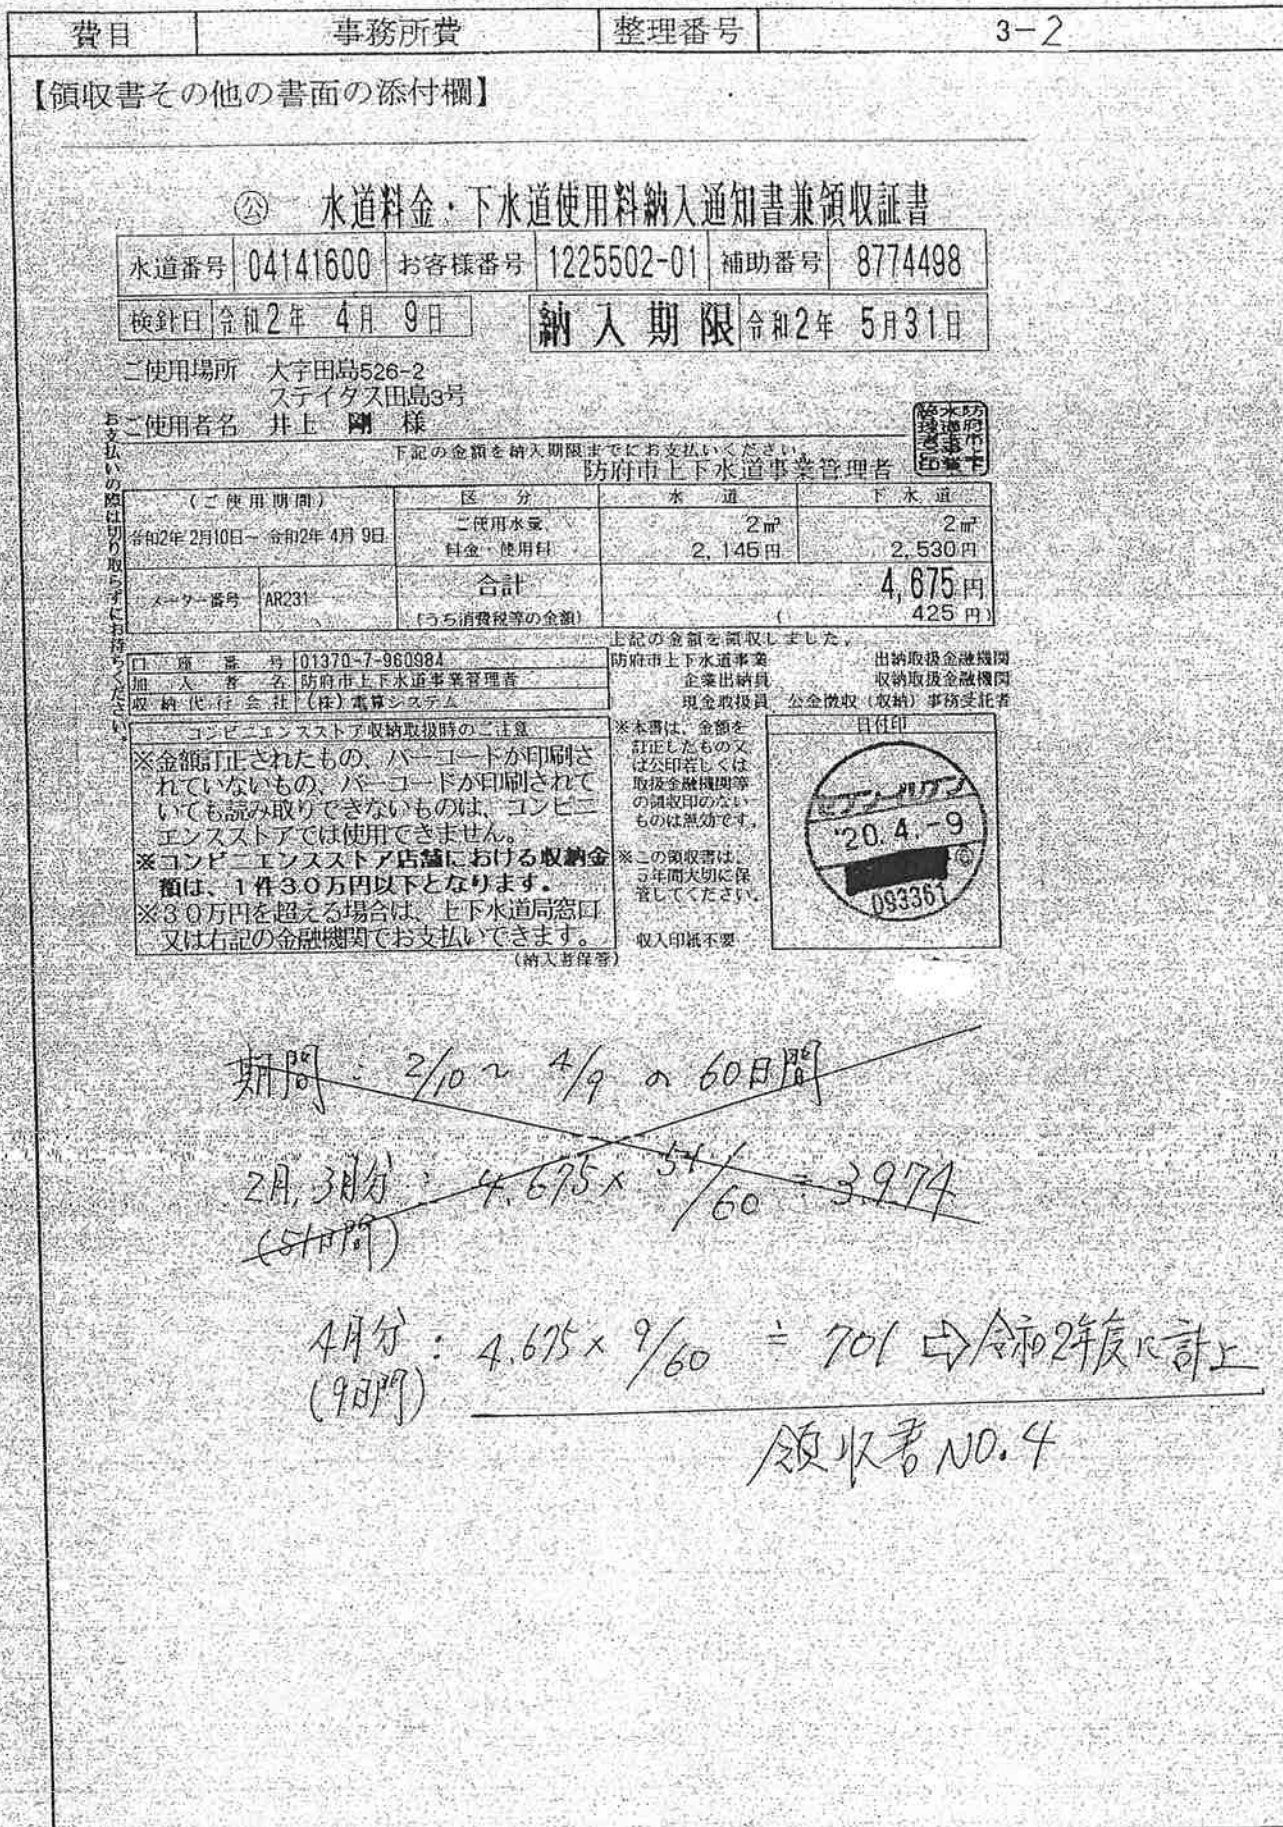 費目 事務所費 整理番号 3-2
【領収書その他の書面の添付欄】
公 水道料金・下水道使用料納入通知書兼領収証書
水道番号 04141600 お客様番号 1225502-01 補助番号 8774498
検針日 令和2年 4月 9日 納入期限 令和2年 5月31日
ご使用場所 大字田島526-2
ステイタス田島3号
ご使用者名 井上 剛 様
お支払いの際は切り取らずにお持ちください。
下記の金額を納入期限までにお支払いください。
防府市上下水道事業管理者
(ご使用期間) 区分 水道 下水道
令和2年 2月10日~ 令和2年 4月 9日 ご使用水量 2㎥ 2㎥
料金・使用料 2,145円 2,530円
メーター番号 AR231 合計 4,675円
(うち消費税等の金額) ( 425円)
上記の金額を領収しました。
口座番号 01370-7-960984
加入者名 防府市上下水道事業管理者
収納代行会社 (株)電算システム
防府市上下水道事業 出納取扱金融機関
企業出納員 収納取扱金融機関
現金取扱員 公金徴収(収納)事務受託者
コンビニエンスストア収納取扱時のご注意
※金額訂正されたもの、バーコードが印刷さ
れていないもの、バーコードが印刷されて
いても読み取りできないものは、コンビニ
エンスストアでは使用できません。
※コンビニエンスストア店舗における収納金
額は、1件30万円以下となります。
※30万円を超える場合は、上下水道局窓口
又は右記の金融機関でお支払いできます。
(納入者保管)
※本書は、金額を
訂正したもの又
は公印若しくは
取扱金融機関等
の領収印のない
ものは無効です。
※この領収書は、
5年間大切に保
管してください。
収入印紙不要
日付印
セブン-イレブン
'20.4.-9
093361
期間:2/10~4/9の60日間
2月,3月分:4,675×51/60≒3,974
(51日間)
4月分:4,675×9/60≒701⇨令和2年度に計上
(9日間)
領収書NO.4